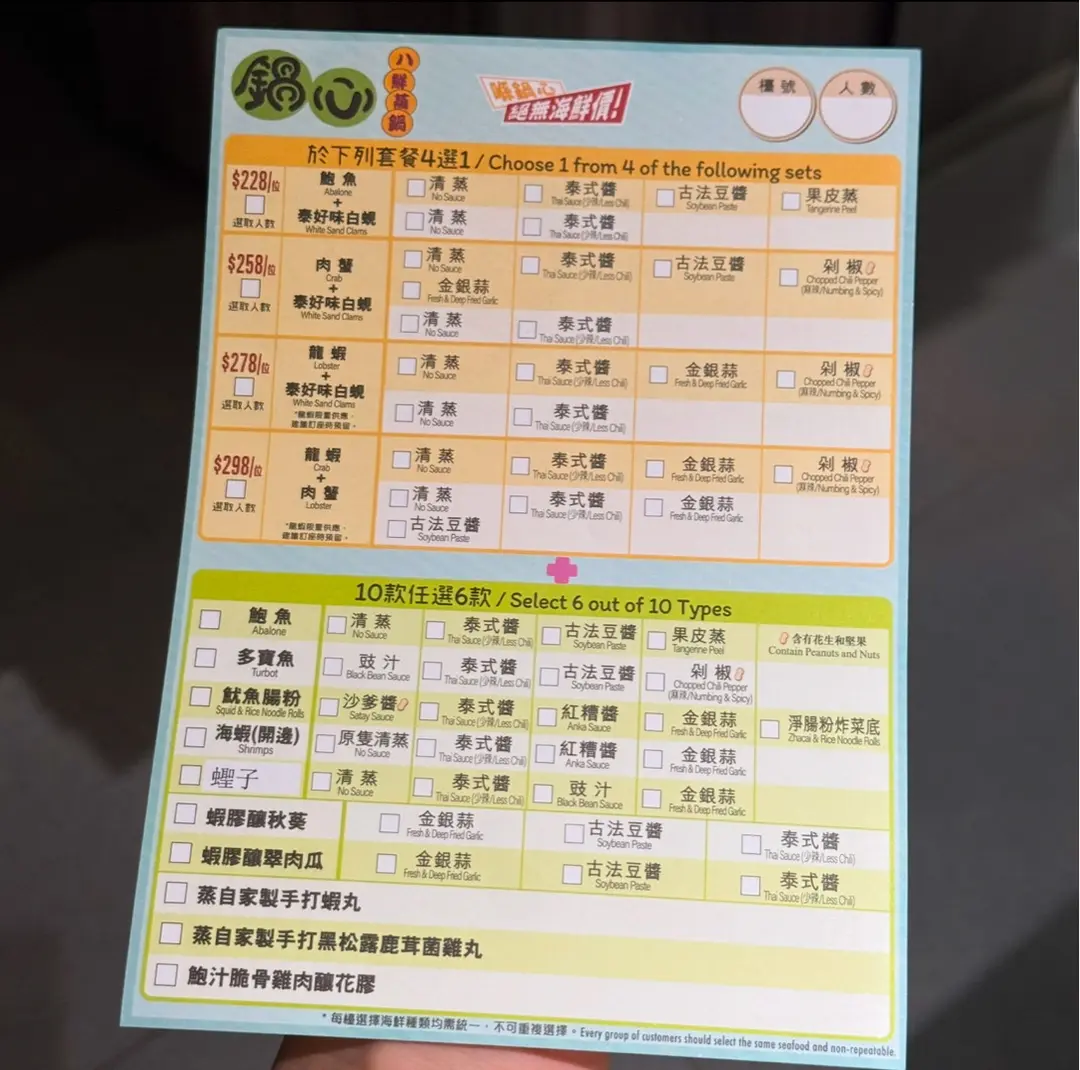 鍋心
八鮮蒸鍋
喺鍋心
絕無海鮮價!
檯號
人數
於下列套餐4選1 / Choose 1 from 4 of the following sets
$228/位
選取人數
鮑魚
Abalone
+
泰好味白蜆
White Sand Clams
清蒸
No Sauce
泰式醬
Thai Sauce (少辣/Less Chili)
古法豆醬
Soybean Paste
果皮蒸
Tangerine Peel
清蒸
No Sauce
泰式醬
Thai Sauce (少辣/Less Chili)
$258/位
選取人數
肉蟹
Crab
+
泰好味白蜆
White Sand Clams
清蒸
No Sauce
泰式醬
Thai Sauce (少辣/Less Chili)
古法豆醬
Soybean Paste
剁椒
Chopped Chili Pepper
(麻辣/Numbing & Spicy)
金銀蒜
Fresh & Deep Fried Garlic
清蒸
No Sauce
泰式醬
Thai Sauce (少辣/Less Chili)
$278/位
選取人數
龍蝦
Lobster
+
泰好味白蜆
White Sand Clams
*龍蝦限量供應，
建議訂座時預留。
清蒸
No Sauce
泰式醬
Thai Sauce (少辣/Less Chili)
金銀蒜
Fresh & Deep Fried Garlic
剁椒
Chopped Chili Pepper
(麻辣/Numbing & Spicy)
清蒸
No Sauce
泰式醬
Thai Sauce (少辣/Less Chili)
$298/位
選取人數
龍蝦
Crab
+
肉蟹
Lobster
*龍蝦限量供應，
建議訂座時預留。
清蒸
No Sauce
泰式醬
Thai Sauce (少辣/Less Chili)
金銀蒜
Fresh & Deep Fried Garlic
剁椒
Chopped Chili Pepper
(麻辣/Numbing & Spicy)
清蒸
No Sauce
泰式醬
Thai Sauce (少辣/Less Chili)
金銀蒜
Fresh & Deep Fried Garlic
古法豆醬
Soybean Paste
10款任選6款 / Select 6 out of 10 Types
鮑魚
Abalone
清蒸
No Sauce
泰式醬
Thai Sauce (少辣/Less Chili)
古法豆醬
Soybean Paste
果皮蒸
Tangerine Peel
含有花生和堅果
Contain Peanuts and Nuts
多寶魚
Turbot
豉汁
Black Bean Sauce
泰式醬
Thai Sauce (少辣/Less Chili)
古法豆醬
Soybean Paste
剁椒
Chopped Chili Pepper
(麻辣/Numbing & Spicy)
魷魚腸粉
Squid & Rice Noodle Rolls
沙爹醬
Satay Sauce
泰式醬
Thai Sauce (少辣/Less Chili)
紅糟醬
Anka Sauce
金銀蒜
Fresh & Deep Fried Garlic
淨腸粉炸菜底
Zhacai & Rice Noodle Rolls
海蝦(開邊)
Shrimps
原隻清蒸
No Sauce
泰式醬
Thai Sauce (少辣/Less Chili)
紅糟醬
Anka Sauce
金銀蒜
Fresh & Deep Fried Garlic
蟶子
清蒸
No Sauce
泰式醬
Thai Sauce (少辣/Less Chili)
豉汁
Black Bean Sauce
金銀蒜
Fresh & Deep Fried Garlic
蝦膠釀秋葵
金銀蒜
Fresh & Deep Fried Garlic
古法豆醬
Soybean Paste
泰式醬
Thai Sauce (少辣/Less Chili)
蝦膠釀翠肉瓜
金銀蒜
Fresh & Deep Fried Garlic
古法豆醬
Soybean Paste
泰式醬
Thai Sauce (少辣/Less Chili)
蒸自家製手打蝦丸
蒸自家製手打黑松露鹿茸菌雞丸
鮑汁脆骨雞肉釀花膠
* 每檯選擇海鮮種類均需統一，不可重複選擇。Every group of customers should select the same seafood and non-repeatable.